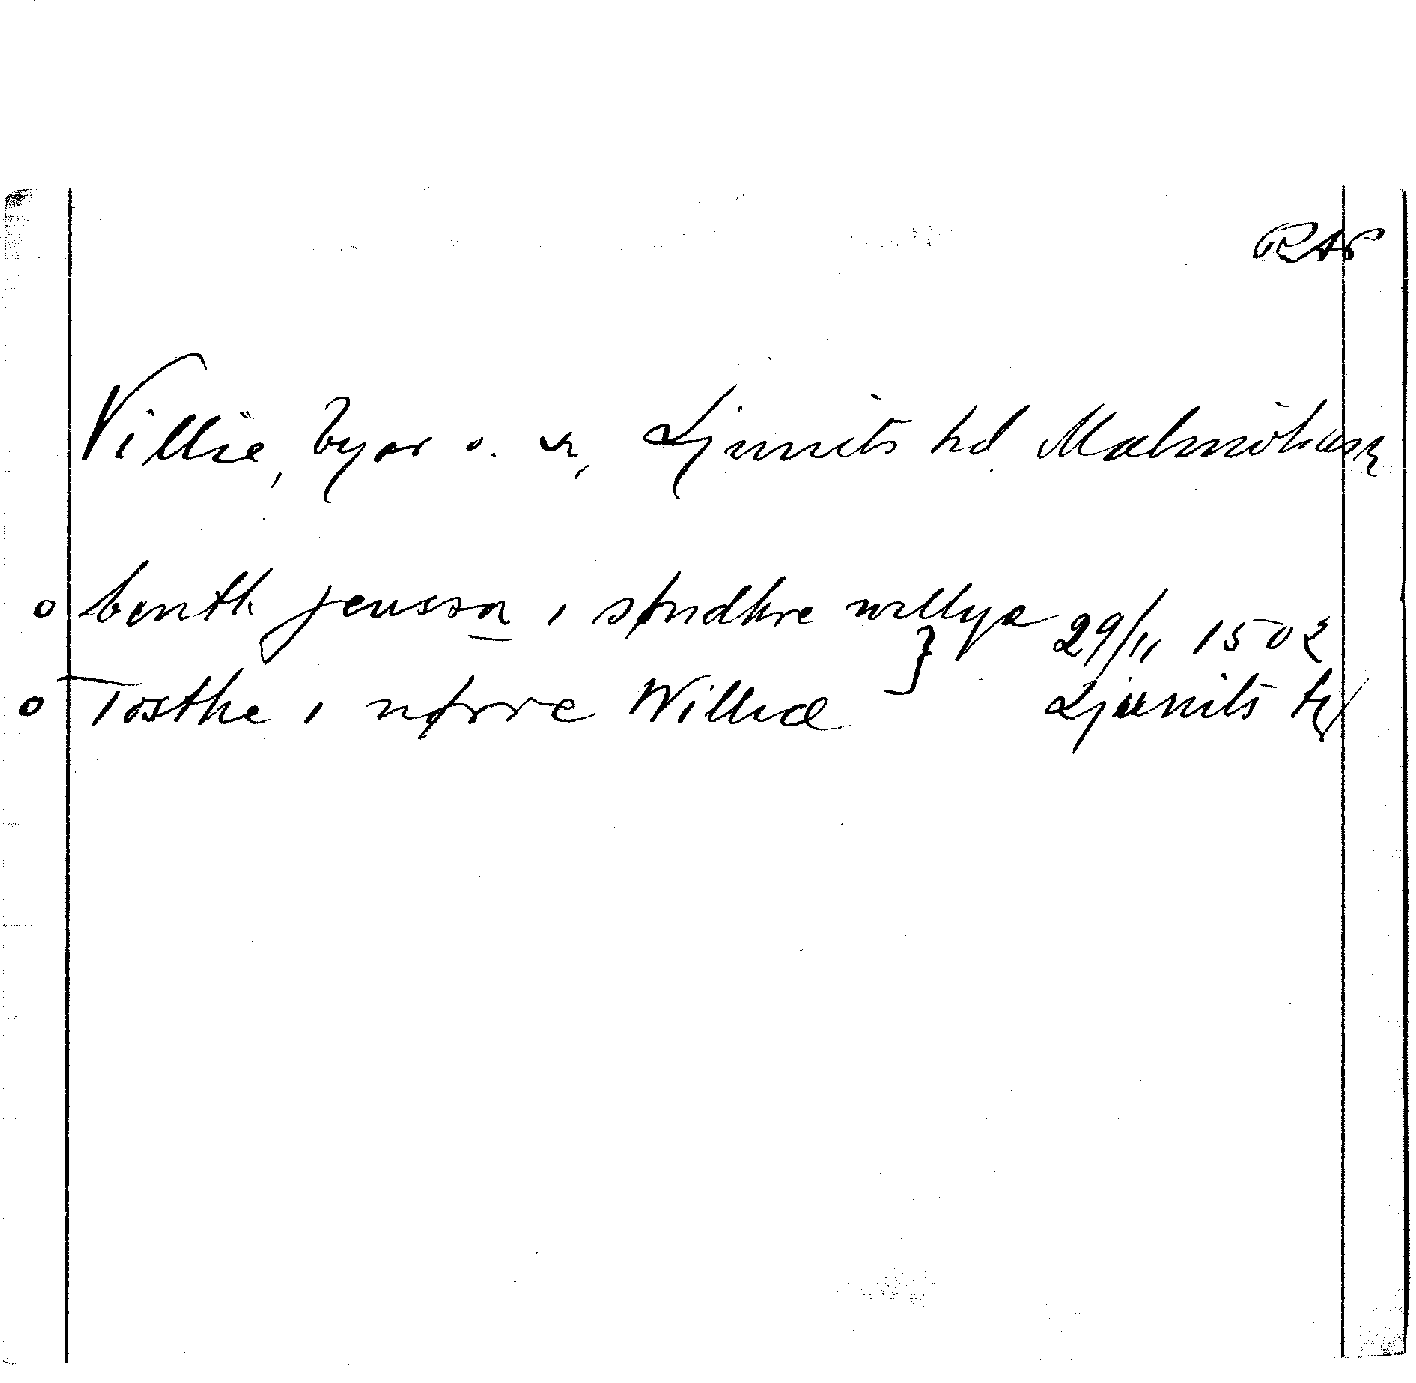 RAP
Villie, byar o. sn, Ljunits hd Malmöhus
o benth jensson i søndhre willyæ 29/11 1502
o Tosthe i nørre Williæ } Ljunits hd